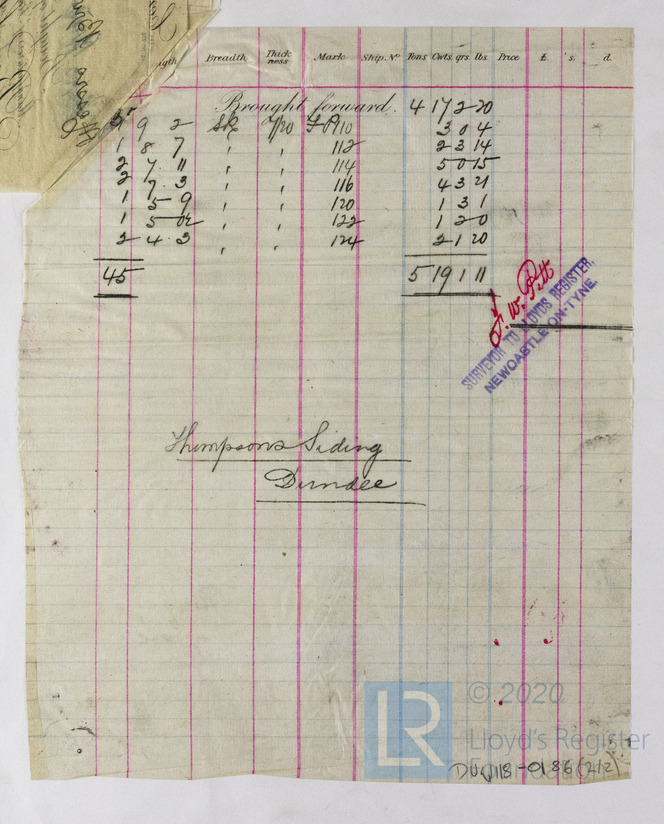 ngth Breadth Thick ness Mark Ship. No Tons Cwts. qrs. lbs. Price £ s. d.
Brought forward. 4 17 2 20
9 2 Sk 7/20 110 3 0 4
1 8 7 " " 112 2 3 14
2 7. 11 " " 114 5 0 15
2 7. 3 " " 116 4 3 21
1 5 9 " " 120 1 3 1
1 5 " " 122 1 2 0
2 4. 3 " " 124 2 1 20
45 5 19 1 11
J. W. Pitt
SURVEYOR TO LLOYDS REGISTER.
NEWCASTLE-ON-TYNE.
Thompsons Siding
Dundee
LR
© 2020
Lloyd's Register
Foundation
DUN118-0186 (2/2)